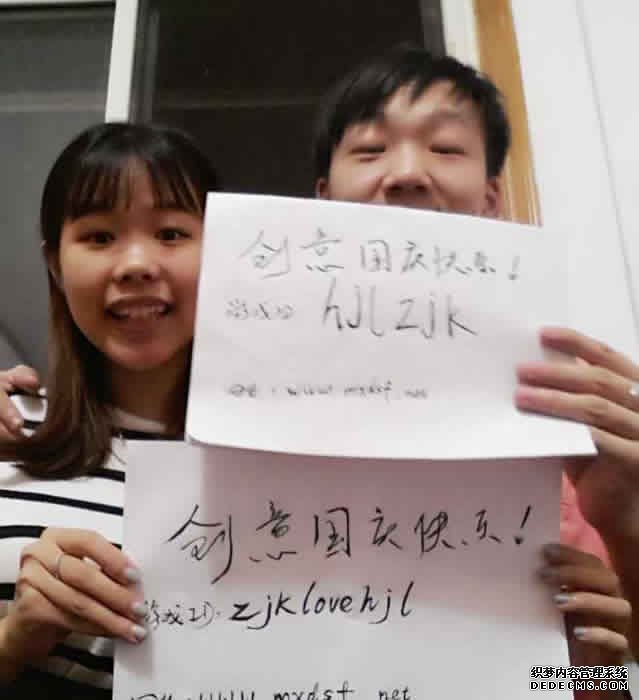 创意国庆快乐！
游戏ID hjlzjk
www.mxdsf.net
创意国庆快乐！
游戏ID: zjklovehjl
www.mxdsf.net
织梦内容管理系统
DEDECMS.COM